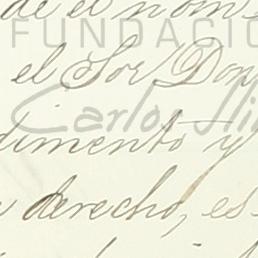 de el nom
FUNDACIÓ
el Sor Don
Carlos
dimento y
derecho, es